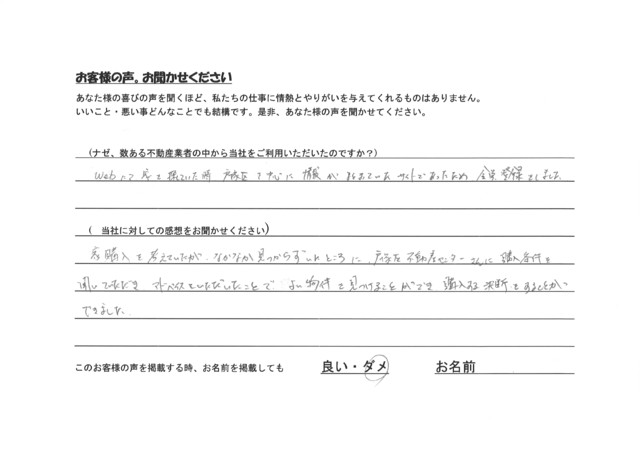 お客様の声。お聞かせください
あなた様の喜びの声を聞くほど、私たちの仕事に情熱とやりがいを与えてくれるものはありません。
いいこと・悪い事どんなことでも結構です。是非、あなた様の声を聞かせてください。
(ナゼ、数ある不動産業者の中から当社をご利用いただいたのですか?)
Webで 探していた所 戸塚区 情報が サイトであったため 会員登録をしました
( 当社に対しての感想をお聞かせください)
購入を考えていたが、なかなか見つからずにいたところに、戸塚区不動産センターさんに購入条件を
聞いていただき アドバイスをいただいたことで よい物件を見つけることができ 購入する決断をすることが
できました。
このお客様の声を掲載する時、お名前を掲載しても 良い・ダメ お名前